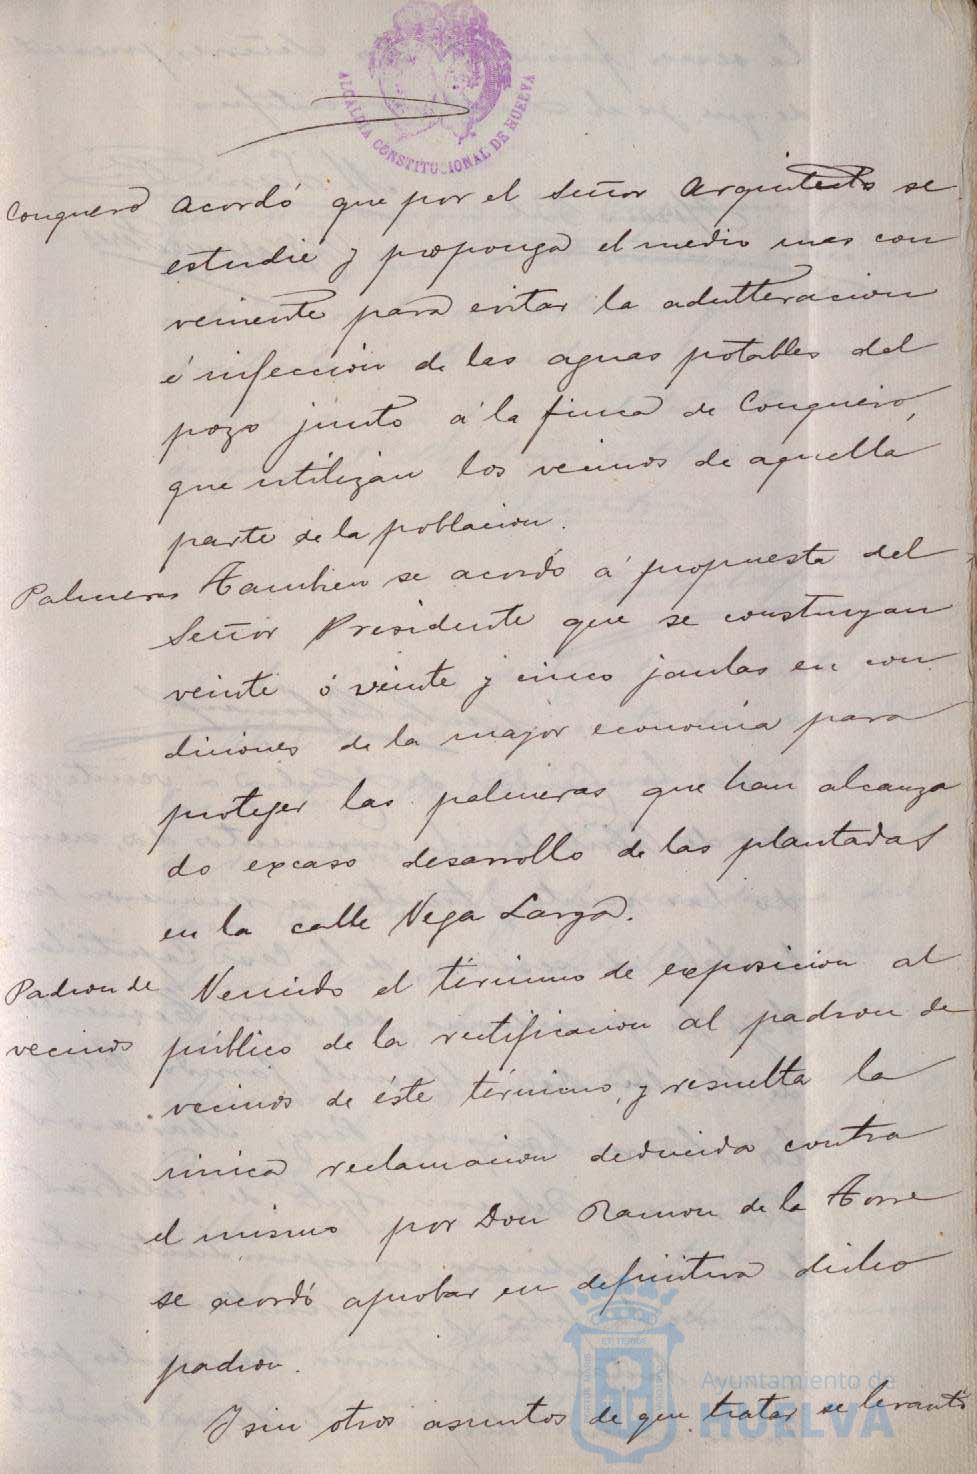 ALCALDIA CONSTITUCIONAL DE HUELVA
Conquero acordó que por el Señor Arquitecto se
estudie y proponga el medio mas con
veniente para evitar la adulteracion
é infeccion de las aguas potables del
pozo junto á la finca de Conquero,
que utilizan los vecinos de aquella
parte de la poblacion.
Palmeras Tambien se acordó á propuesta del
Señor Presidente que se construyan
veinte ó veinte y cinco jaulas en con
diciones de la mayor economia para
proteger las palmeras que han alcanza
do excaso desarrollo de las plantadas
en la calle Vega Larga.
Padron de Vencido el término de exposicion al
vecinos público de la rectificacion al padron de
vecinos de éste término, y resuelta la
única reclamacion deducida contra
el mismo por Don Ramon de la Torre
se acordó aprobar en definitiva dicho
padron.
Y sin otros asuntos de que tratar se levantó
Ayuntamiento de
HUELVA